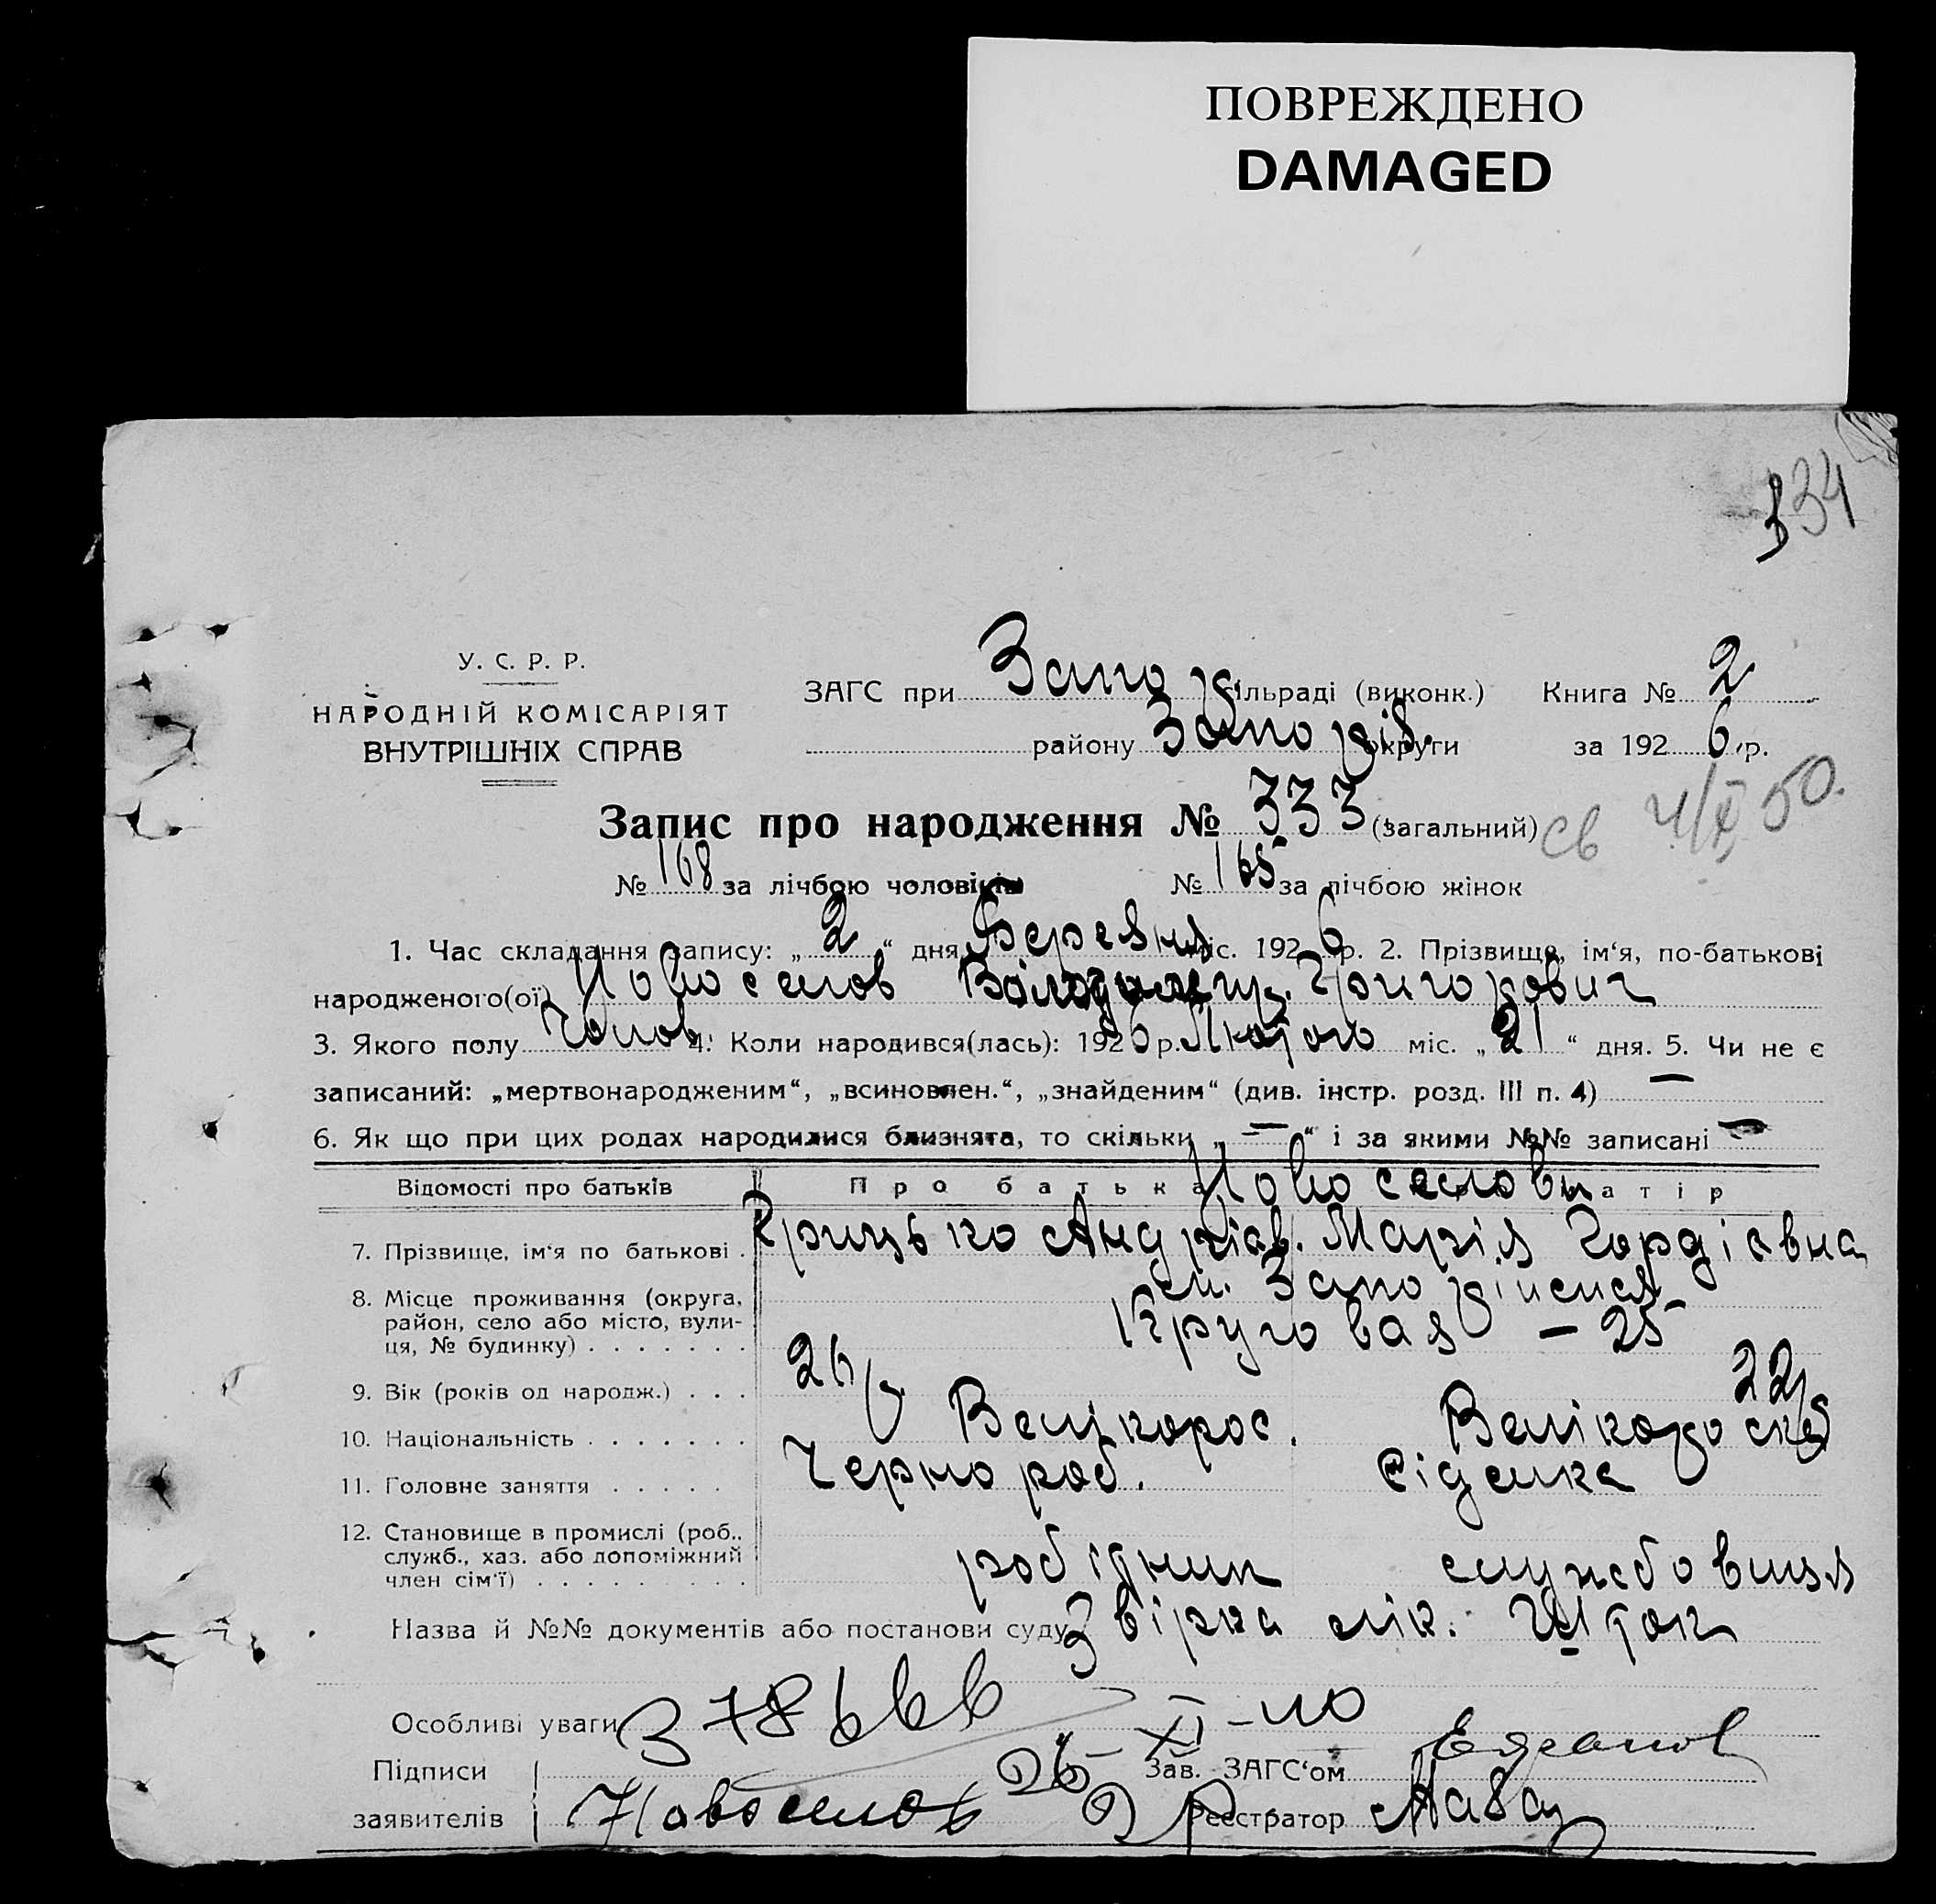 ПОВРЕЖДЕНО
DAMAGED
334
У. С. Р. Р.
НАРОДНІЙ КОМІСАРІЯТ
ВНУТРІШНІХ СПРАВ
ЗАГС при Запоріз. сільраді (виконк.) Книга № 2
району Запоріз. округи за 1926 р.
Запис про народження № 333 (загальний)
№ 168 за лічбою чоловіків № 165 за лічбою жінок
1. Час складання запису: „2“ дня Березня міс. 1926 р. 2. Прізвище, ім‘я, по-батькові
народженого(ої) Новоселов Володимир. Григорович
3. Якого полу Чолов. 4. Коли народився(лась): 1926 р. Лютого міс. „21“ дня. 5. Чи не є
записаний: „мертвонародженим“, „всиновлен.“, „знайденим“ (див. інстр. розд. III п. 4) —
6. Як що при цих родах народилися близнята, то скільки „—“ і за якими №№ записані —
Відомості про батьків Про батька Про матір
Новоселови
7. Прізвище, ім‘я по батькові. Грицько Андріїв. Марія Гордієвна
8. Місце проживання (округа, район, село або місто, вулиця, № будинку) м. Запоріжжя
Круговая – 25
9. Вік (років од народж.) 26 22
10. Національність Велікорос. Великороска
11. Головне заняття Чернороб. Сіделка
12. Становище в промислі (роб., служб., хаз. або допоміжний член сім‘ї) робідник службовиця
Назва й №№ документів або постанови суду Звірка лік. Шток
Особливі уваги
Підписи заявителів Новоселов
Зав. ЗАГС‘ом
Реєстратор